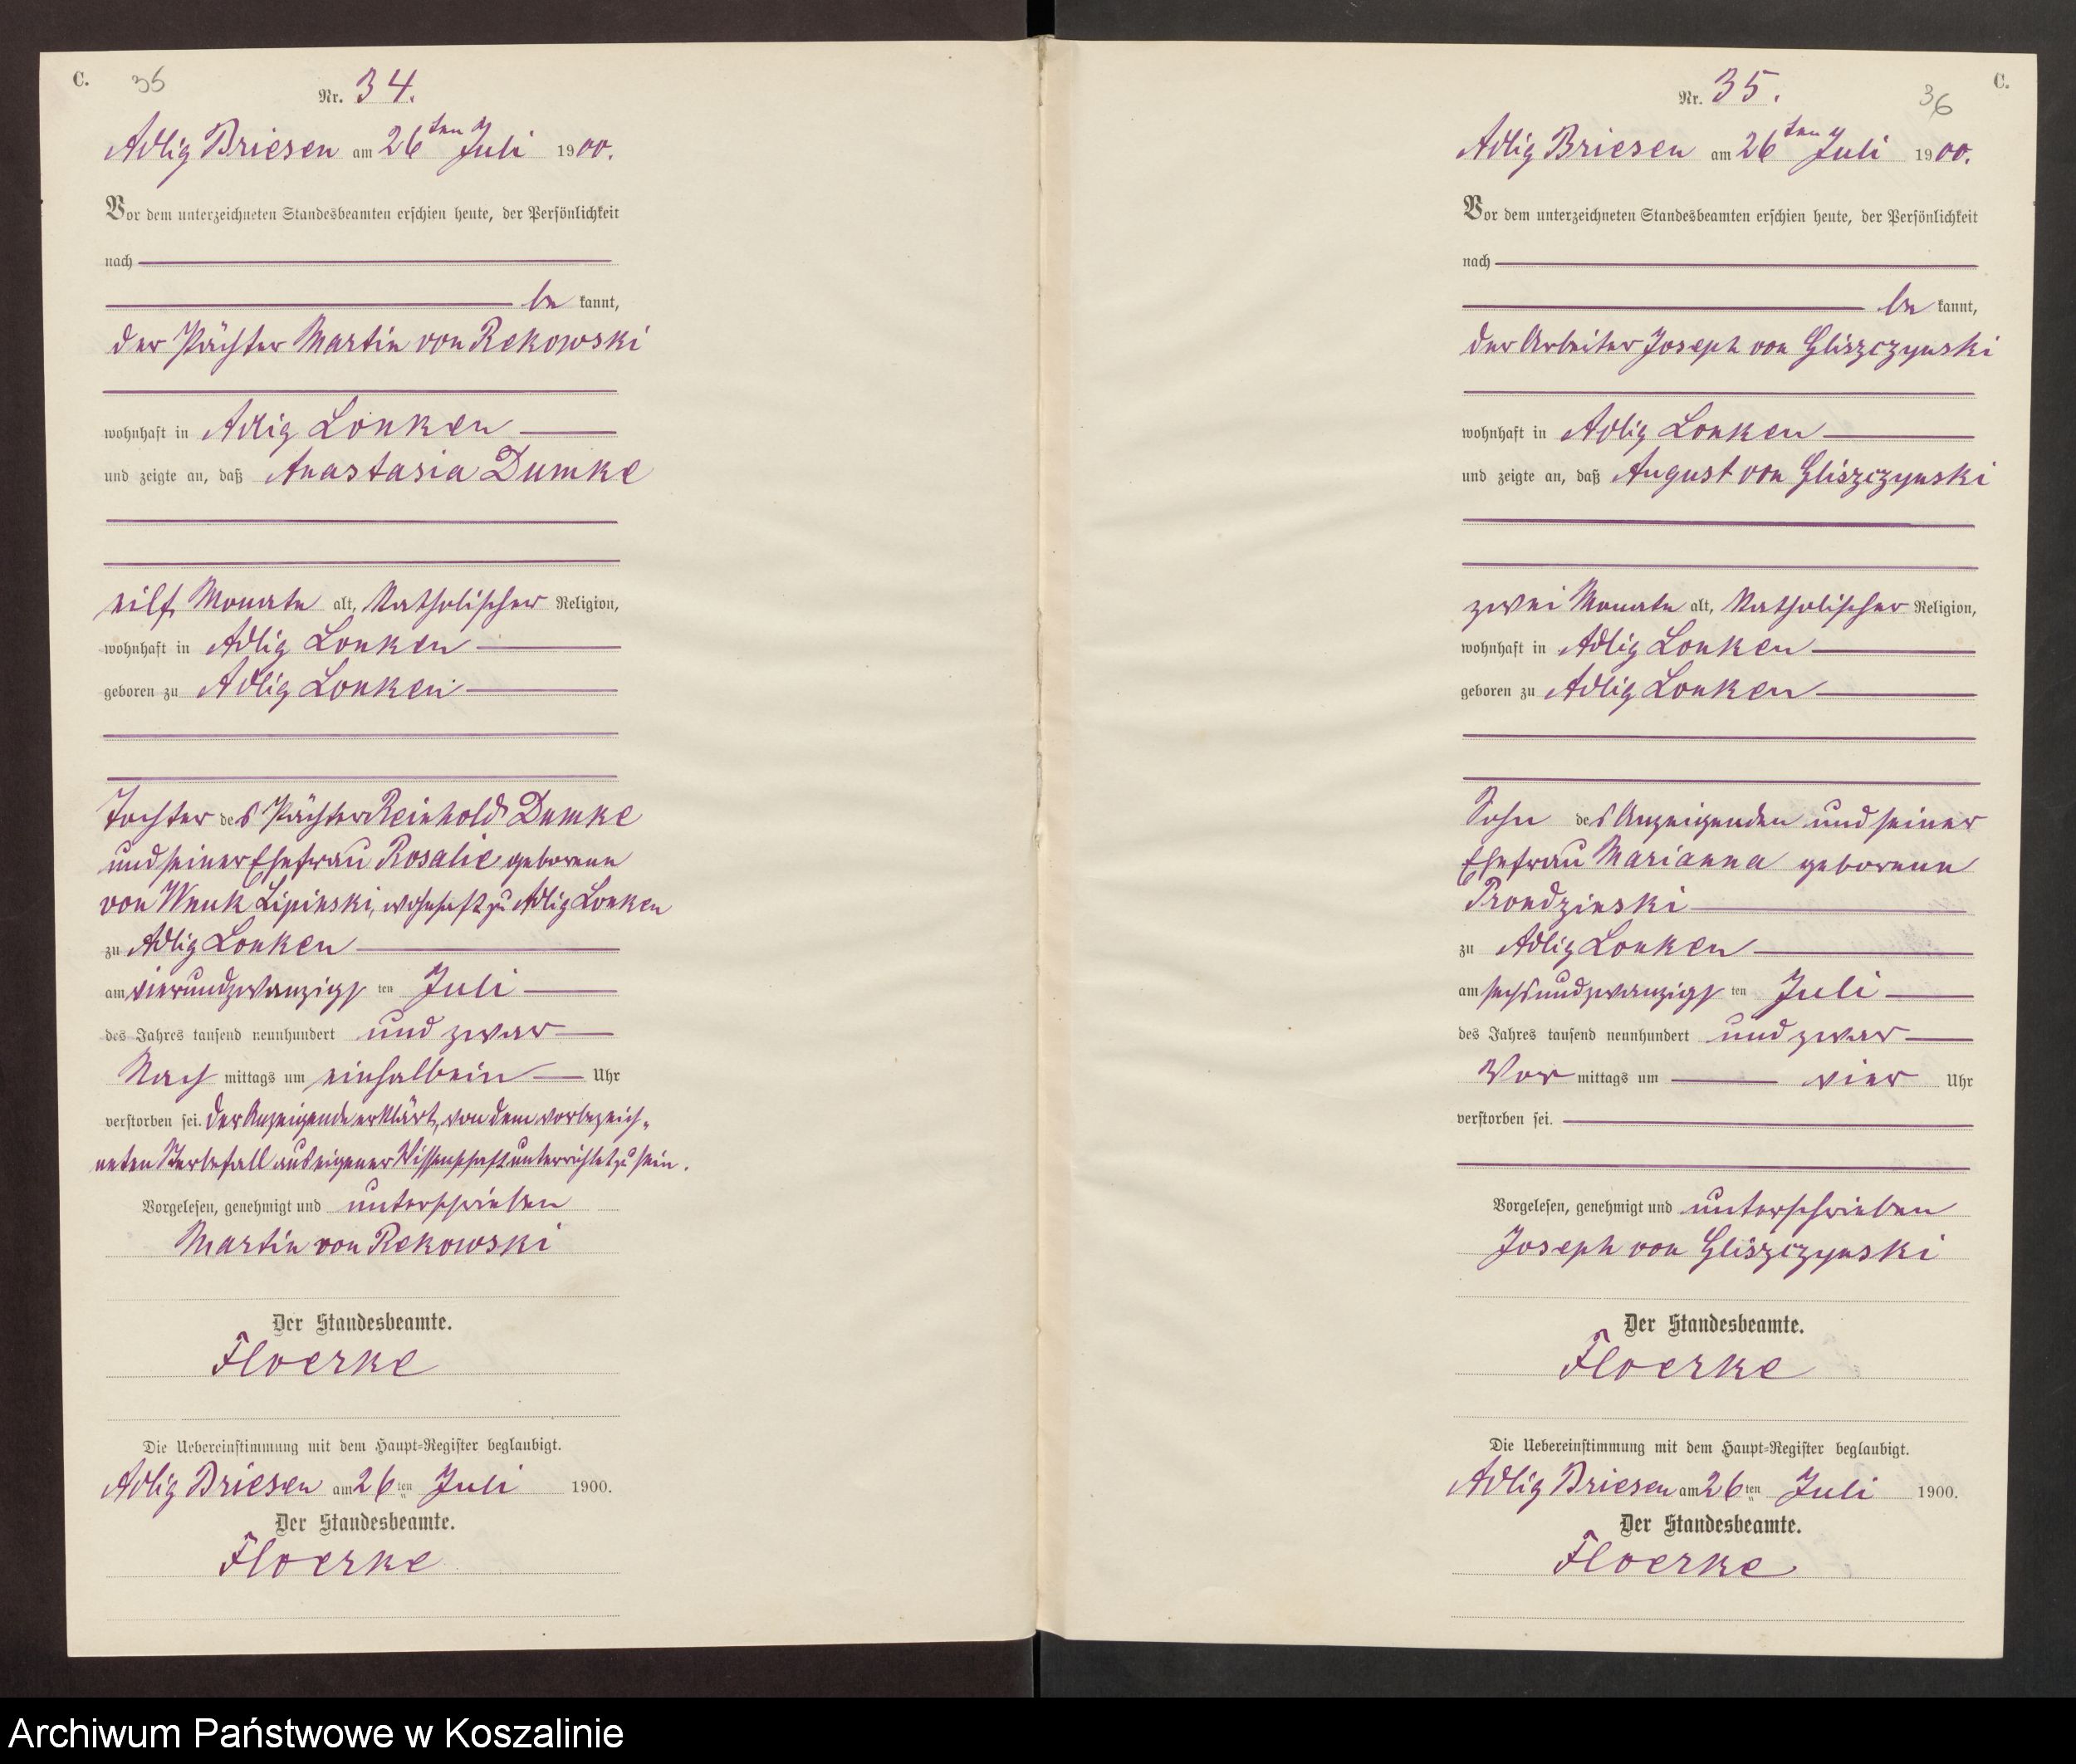 C. 35
Nr. 34.
Adlig Briesen am 26ten Juli 1900.
Vor dem unterzeichneten Standesbeamten erschien heute, der Persönlichkeit
nach
be kannt,
der Pächter Martin von Rekowski
wohnhaft in Adlig Lonken
und zeigte an, daß Anastasia Dumke
eilf Monate alt, katholischer Religion,
wohnhaft in Adlig Lonken
geboren zu Adlig Lonken
Tochter des Pächter Reinhold Dumke
und seiner Ehefrau Rosalie geborene
von Wnuk Lipinski, wohnhaft zu Adlig Lonken
zu Adlig Lonken
am vierundzwanzigs ten Juli
des Jahres tausend neunhundert und zwar
Nach mittags um einhalbein Uhr
verstorben sei. Der Anzeigende erklärt, von dem vorbezeich-
neten Sterbefall aus eigener Wissenschaft unterrichtet zu sein.
Vorgelesen, genehmigt und unterschrieben
Martin von Rekowski
Der Standesbeamte.
Floerke
Die Uebereinstimmung mit dem Haupt-Register beglaubigt.
Adlig Briesen am 26ten Juli 1900.
Der Standesbeamte.
Floerke
C.
Nr. 35. 36
Adlig Briesen am 26ten Juli 1900.
Vor dem unterzeichneten Standesbeamten erschien heute, der Persönlichkeit
nach
be kannt,
der Arbeiter Joseph von Gliszczynski
wohnhaft in Adlig Lonken
und zeigte an, daß August von Gliszczynski
zwei Monate alt, katholischer Religion,
wohnhaft in Adlig Lonken
geboren zu Adlig Lonken
Sohn des Anzeigenden und seiner
Ehefrau Marianna geborene
Prondzinski
zu Adlig Lonken
am sechsundzwanzigs ten Juli
des Jahres tausend neunhundert und zwar
Vor mittags um vier Uhr
verstorben sei.
Vorgelesen, genehmigt und unterschrieben
Joseph von Gliszczynski
Der Standesbeamte.
Floerke
Die Uebereinstimmung mit dem Haupt-Register beglaubigt.
Adlig Briesen am 26ten Juli 1900.
Der Standesbeamte.
Floerke
Archiwum Państwowe w Koszalinie